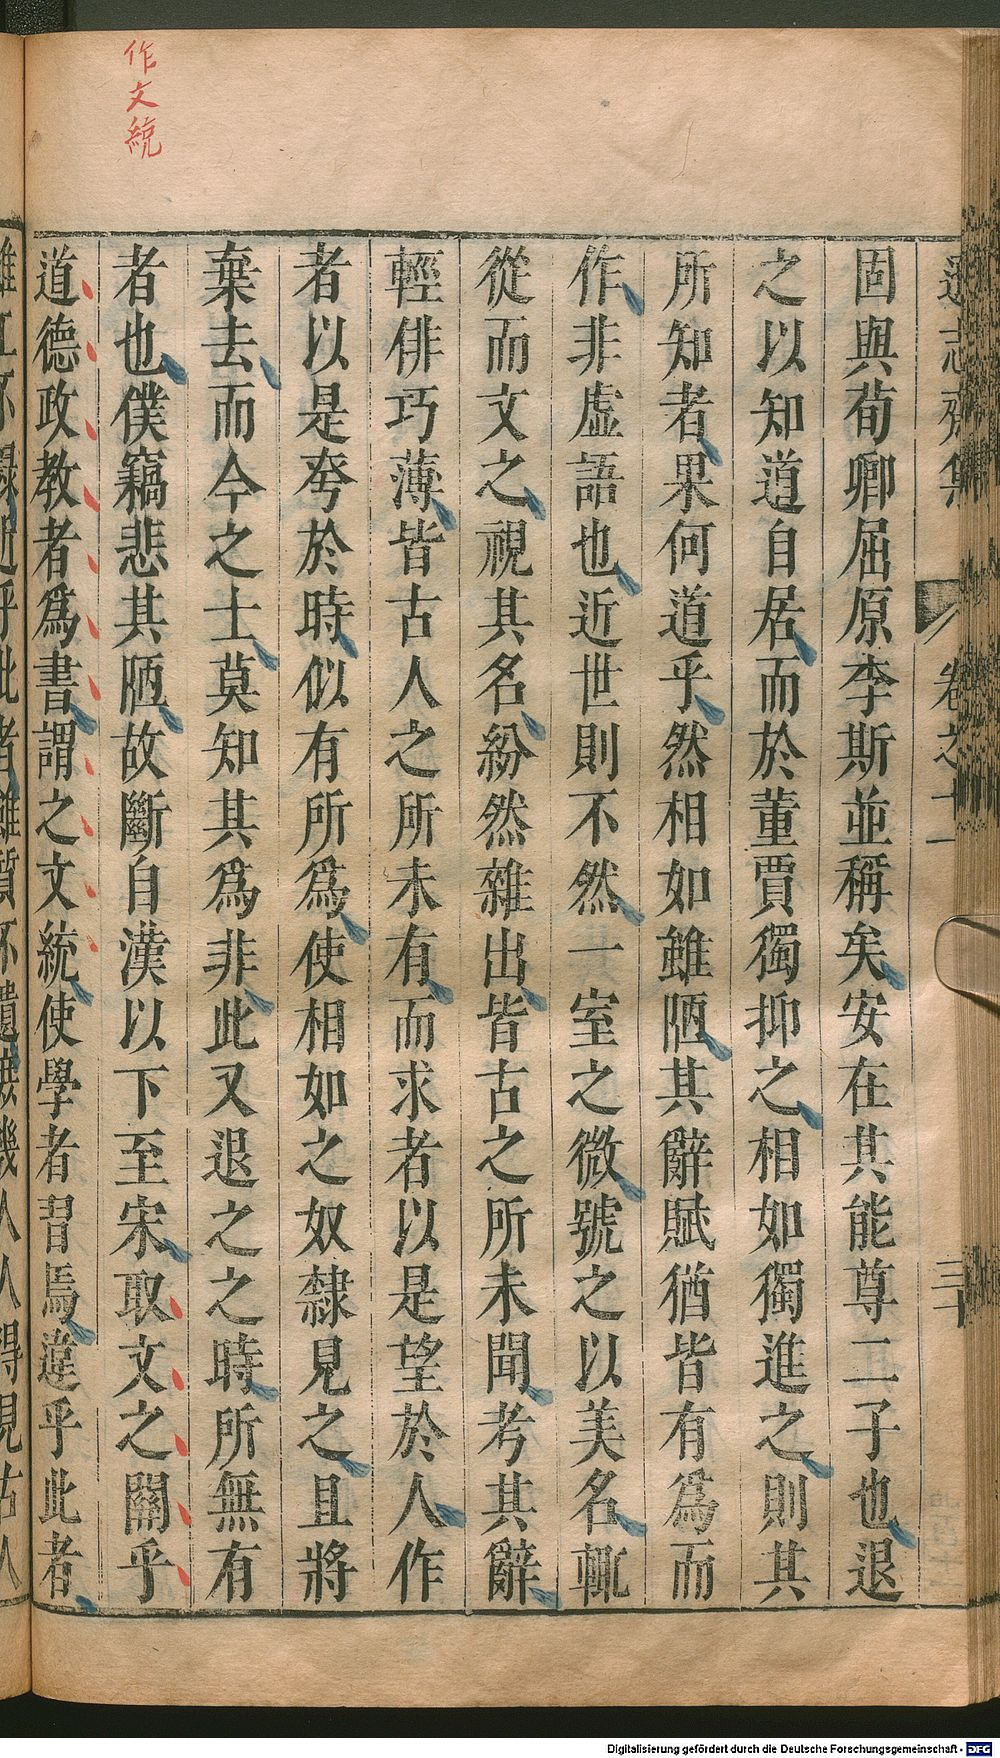 作文統
遜志齋集
卷之十一
三十
固與荀卿屈原李斯並稱矣安在其能尊二子也退
之以知道自居而於董賈獨抑之相如獨進之則其
所知者果何道乎然相如雖陋其辭賦猶皆有為而
作非虛語也近世則不然一室之微號之以美名輒
從而文之視其名紛然雜出皆古之所未聞考其辭
輕俳巧薄皆古人之所未有而求者以是望於人作
者以是夸於時似有所為使相如之奴隸見之且將
棄去而今之士莫知其為非此又退之之時所無有
者也僕竊悲其陋故斷自漢以下至宋取文之關乎
道德政教者為書謂之文統使學者習焉違乎此者
雖工不錄近乎此者雖質不遺庶幾人人得見古人
Digitalisierung gefördert durch die Deutsche Forschungsgemeinschaft - DFG